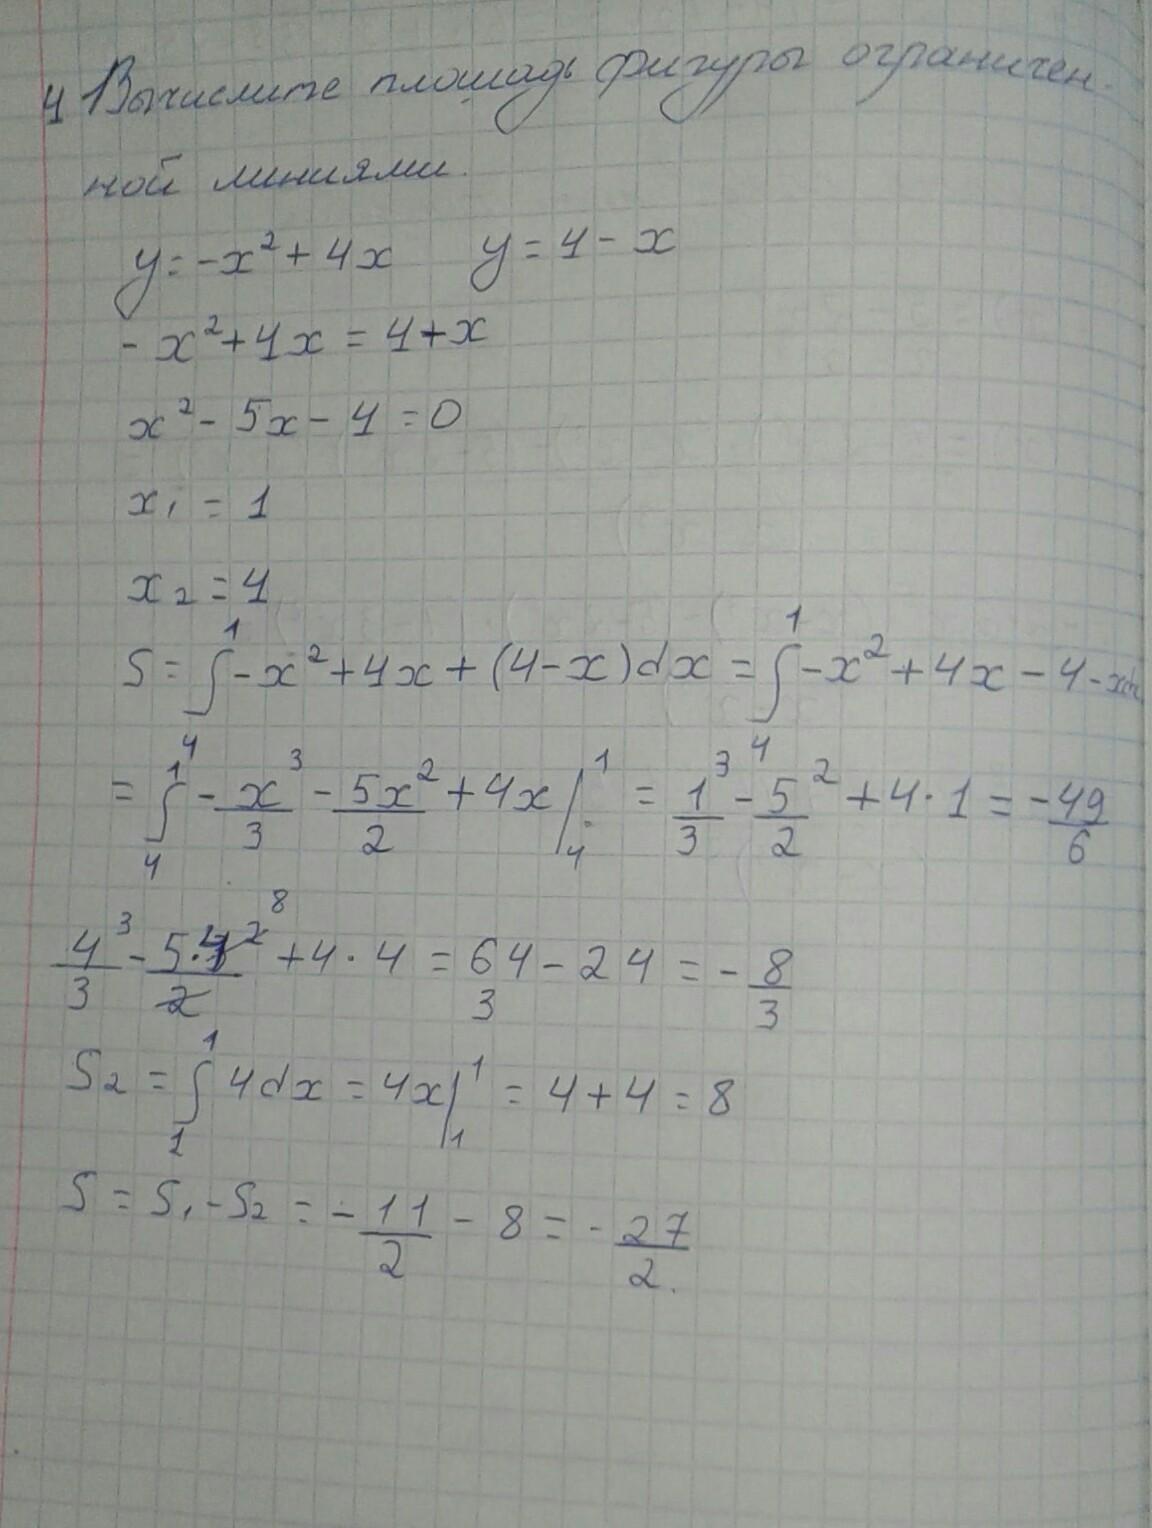 4 Вычислите площадь фигуры ограничен-
ной линиями.
y = -x² + 4x   y = 4 - x
- x² + 4x = 4 + x
x² - 5x - 4 = 0
x₁ = 1
x₂ = 4
S = ∫₄¹ -x² + 4x + (4 - x)dx = ∫₄¹ -x² + 4x - 4 - xdx
= ∫₄¹ - x³/3 - 5x²/2 + 4x |₄¹ = 1³/3 - 5²/2 + 4 · 1 = -49/6
4³/3 - 5·4²/2 ⁸ + 4 · 4 = 64/3 - 24 = - 8/3
S₂ = ∫₁¹ 4dx = 4x |₁¹ = 4 + 4 = 8
S = S₁ - S₂ = - 11/2 - 8 = - 27/2.